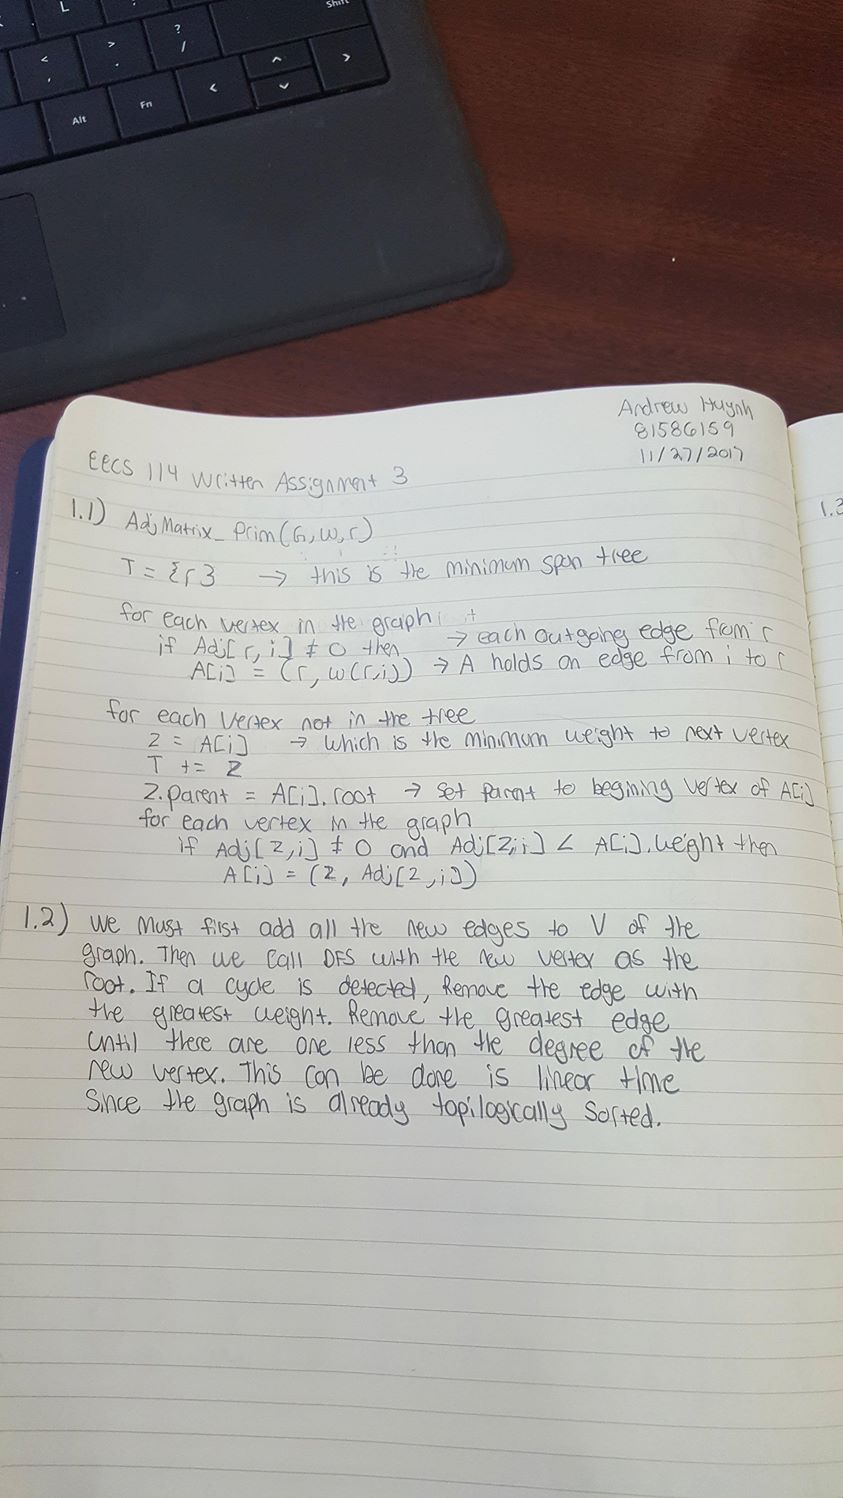 L
Shift
<
,
>
.
?
/
Alt
Fn
<
^
v
>
Andrew Huynh
81586159
11/27/2017
EECS 114 Written Assignment 3
1.1) AdjMatrix_Prim(G,w,r)
T = {r} → this is the minimum span tree
for each vertex in the graph
if Adj[r,i] ≠ 0 then → each outgoing edge from r
A[i] = (r, w(r,i)) → A holds an edge from i to r
for each vertex not in the tree
z = A[i] → which is the minimum weight to next vertex
T += z
z.parent = A[i].root → set parent to begining vertex of A[i]
for each vertex in the graph
if Adj[z,i] ≠ 0 and Adj[z,i] < A[i].weight then
A[i] = (z, Adj[z,i])
1.2) we must first add all the new edges to V of the
graph. Then we call DFS with the new vertex as the
root. If a cycle is detected, Remove the edge with
the greatest weight. Remove the greatest edge
until there are one less than the degree of the
new vertex. This can be done is linear time
Since the graph is already topilogically sorted.